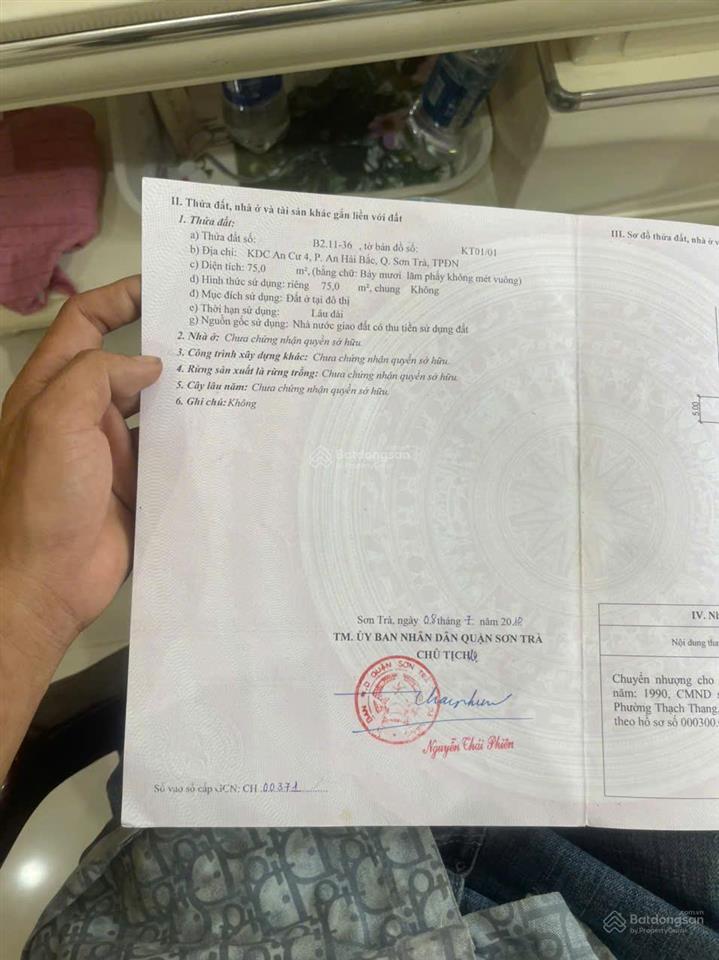 II. Thửa đất, nhà ở và tài sản khác gắn liền với đất
1. Thửa đất:
a) Thửa đất số: B2.11-36 , tờ bản đồ số: KT01/01
b) Địa chỉ: KDC An Cư 4, P. An Hải Bắc, Q. Sơn Trà, TPĐN
c) Diện tích: 75,0 m², (bằng chữ: Bảy mươi lăm phẩy không mét vuông)
d) Hình thức sử dụng: riêng 75,0 m², chung Không
đ) Mục đích sử dụng: Đất ở tại đô thị
e) Thời hạn sử dụng: Lâu dài
g) Nguồn gốc sử dụng: Nhà nước giao đất có thu tiền sử dụng đất
2. Nhà ở: Chưa chứng nhận quyền sở hữu.
3. Công trình xây dựng khác: Chưa chứng nhận quyền sở hữu.
4. Rừng sản xuất là rừng trồng: Chưa chứng nhận quyền sở hữu.
5. Cây lâu năm: Chưa chứng nhận quyền sở hữu.
6. Ghi chú: Không
Batdongsan
by PropertyGuru
Sơn Trà, ngày 08 tháng 7 năm 2010
TM. ỦY BAN NHÂN DÂN QUẬN SƠN TRÀ
CHỦ TỊCH
QUẬN SƠN TRÀ
Nguyễn Thái Phiên
Số vào sổ cấp GCN: CH 00371
III. Sơ đồ thửa đất, nhà ở v
5.00
IV. Nh
Nội dung tha
Chuyển nhượng cho
năm: 1990, CMND s
Phường Thạch Thang,
theo hồ sơ số 000300.
Batdongsan
.com.vn
by PropertyGuru